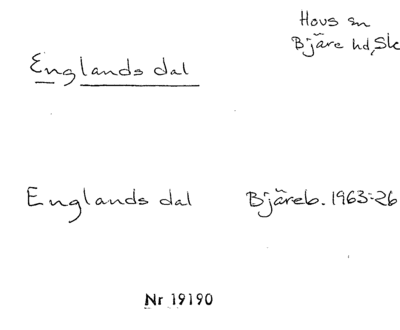 Hovs sn
Bjäre hd, Sk
Englands dal
Englands dal Bjäreb. 1963:26
Nr 19190